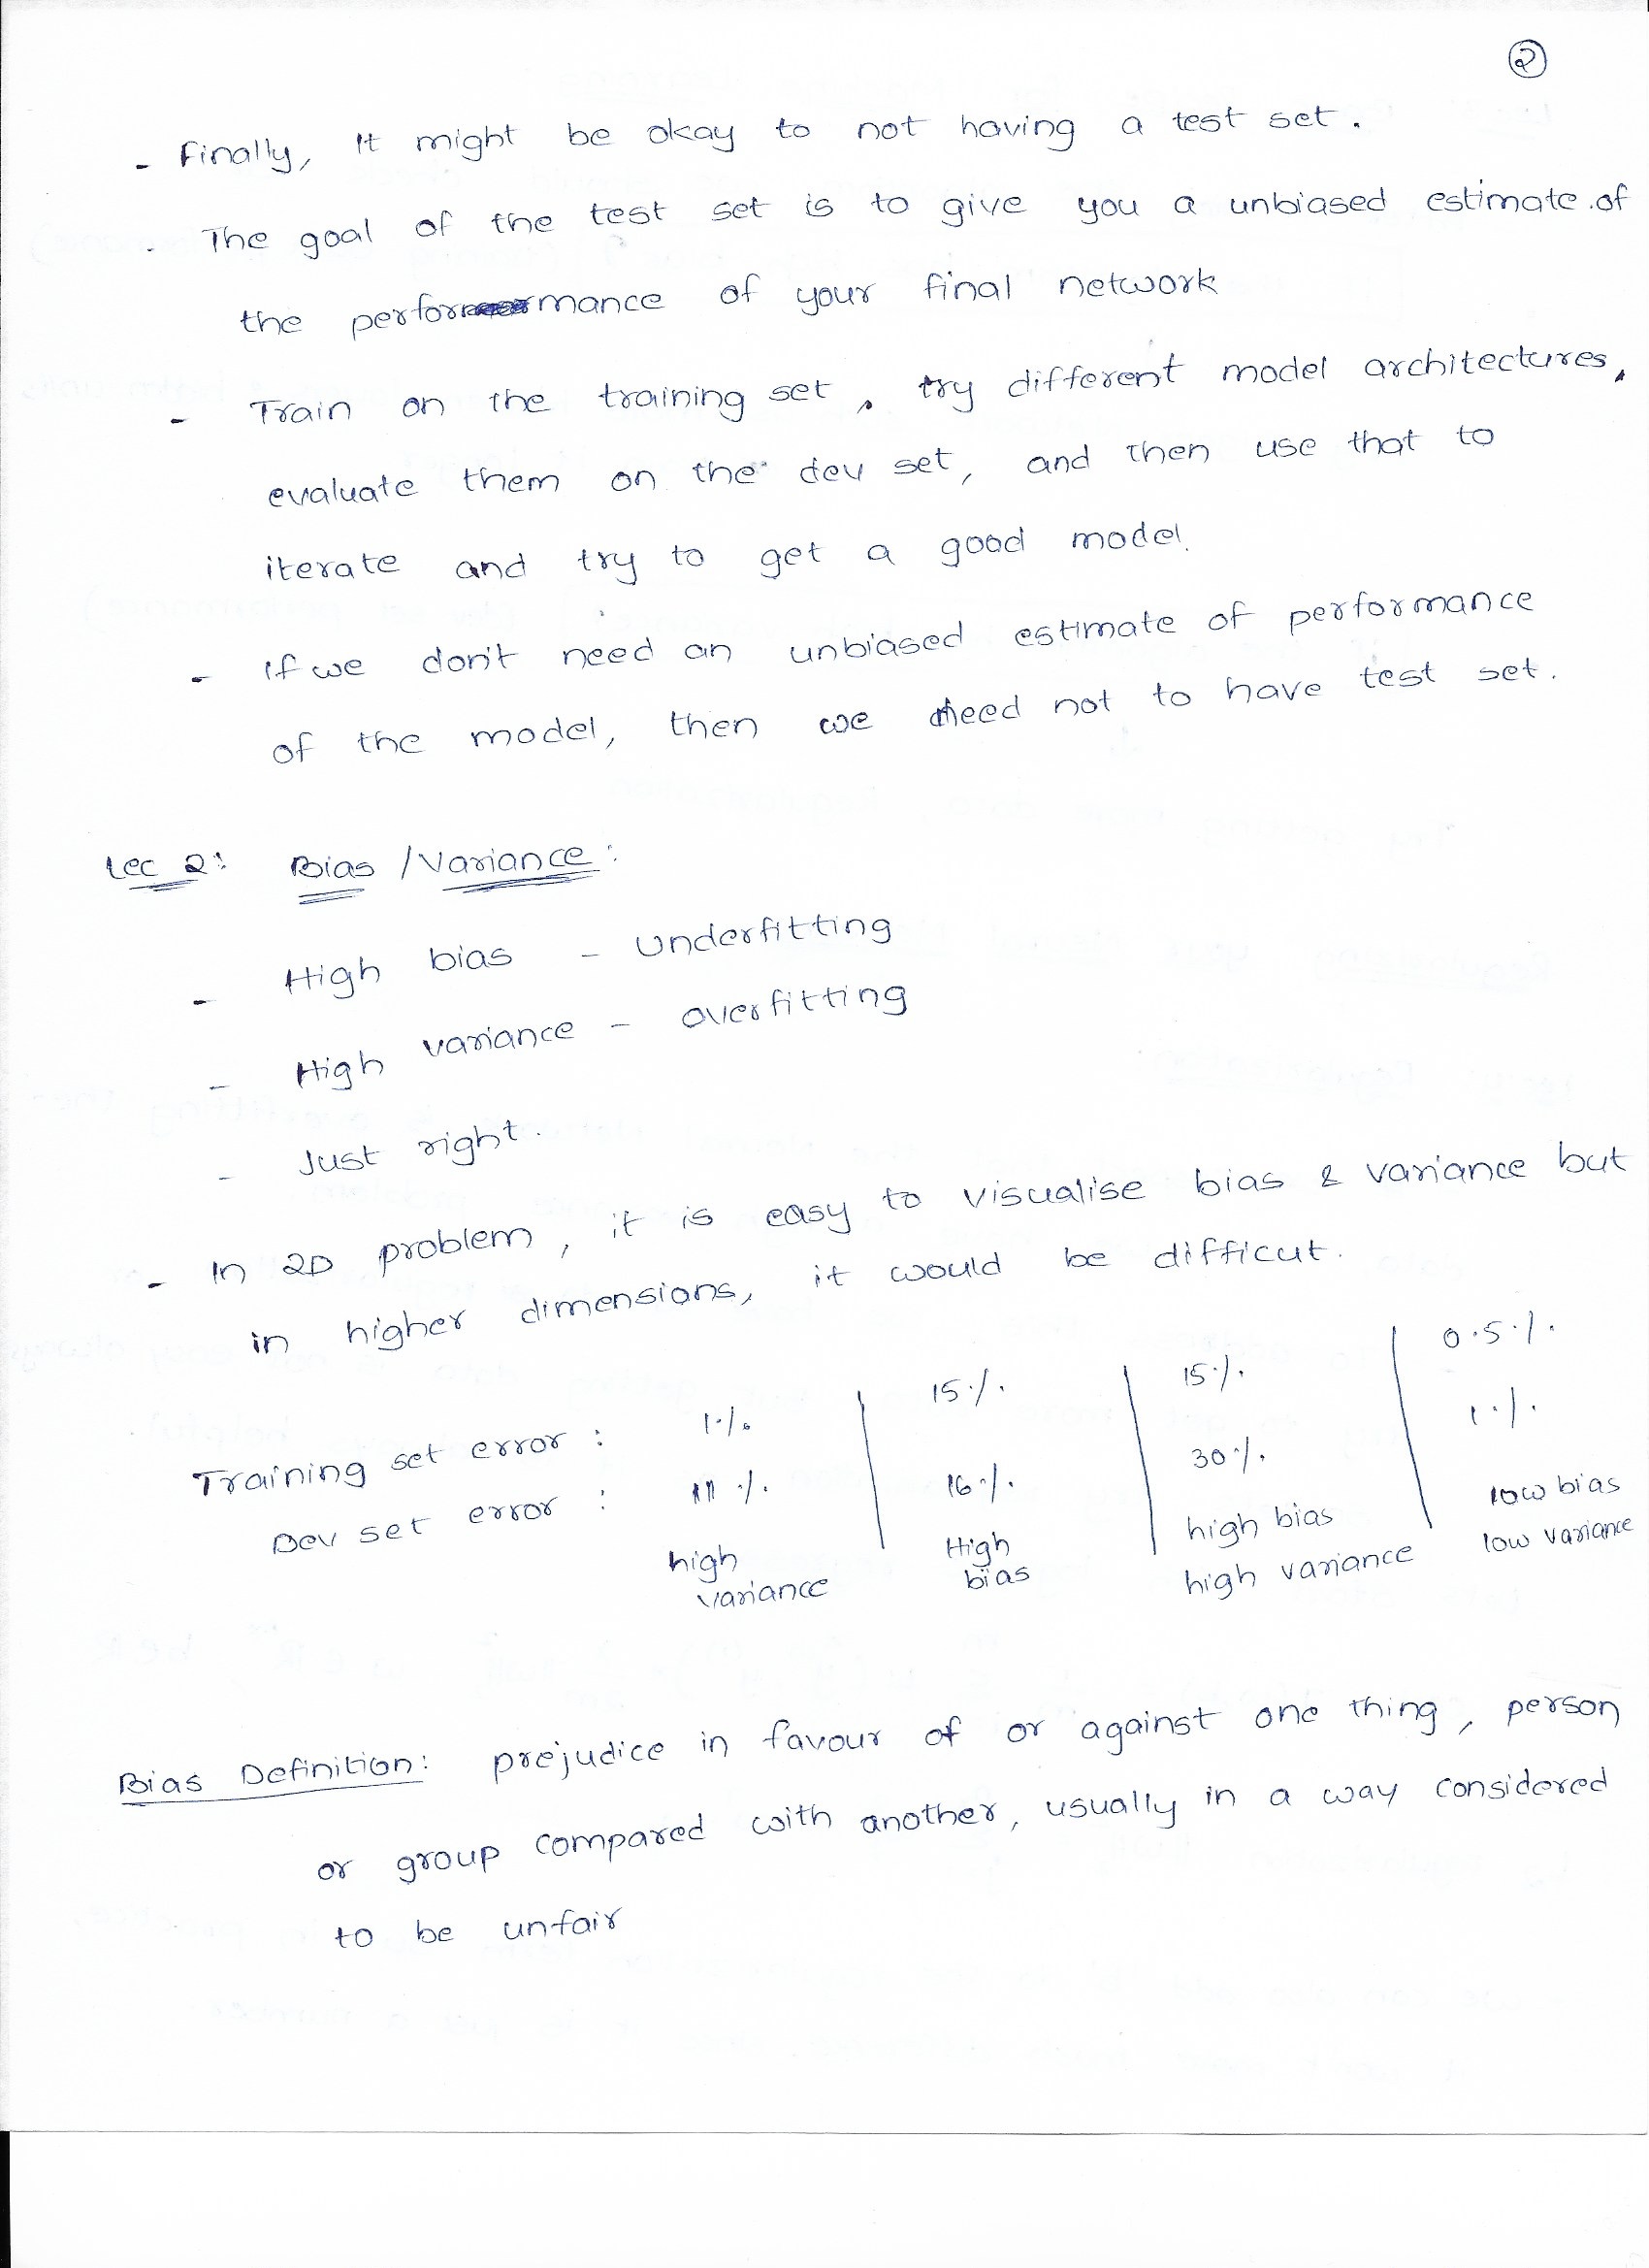 2
- Finally, it might be okay to not having a test set.
. The goal of the test set is to give you a unbiased estimate of
the performance of your final network
- Train on the training set, try different model architectures,
evaluate them on the dev set, and then use that to
iterate and try to get a good model.
- If we don't need an unbiased estimate of performance
of the model, then we need not to have test set.
Lec 2: Bias / Variance:
- High bias - Underfitting
- High variance - overfitting
- Just right.
- In 2D problem, it is easy to visualise bias & variance but
in higher dimensions, it would be difficut.
Training set error: 1% | 15% | 15% | 0.5%
Dev set error: 11% | 16% | 30% | 1%
high variance | High bias | high bias high variance | low bias low variance
Bias Definition: prejudice in favour of or against one thing, person
or group compared with another, usually in a way considered
to be unfair